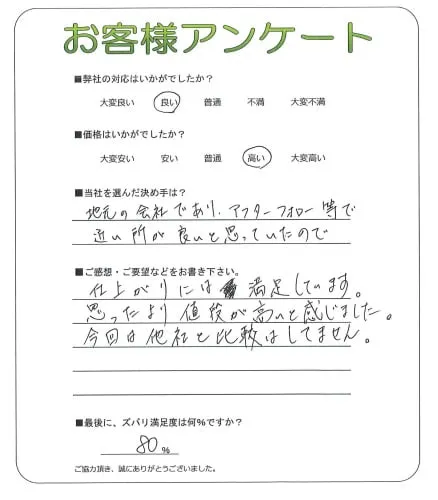 お客様アンケート
■弊社の対応はいかがでしたか?
大変良い 良い 普通 不満 大変不満
■価格はいかがでしたか?
大変安い 安い 普通 高い 大変高い
■当社を選んだ決め手は?
地元の会社であり、アフターフォロー等で
近い所が良いと思っていたので
■ご感想・ご要望などをお書き下さい。
仕上がりには満足しています。
思ったより値段が高いと感じました。
今回は他社と比較はしてません。
■最後に、ズバリ満足度は何%ですか?
80 %
ご協力頂き、誠にありがとうございました。